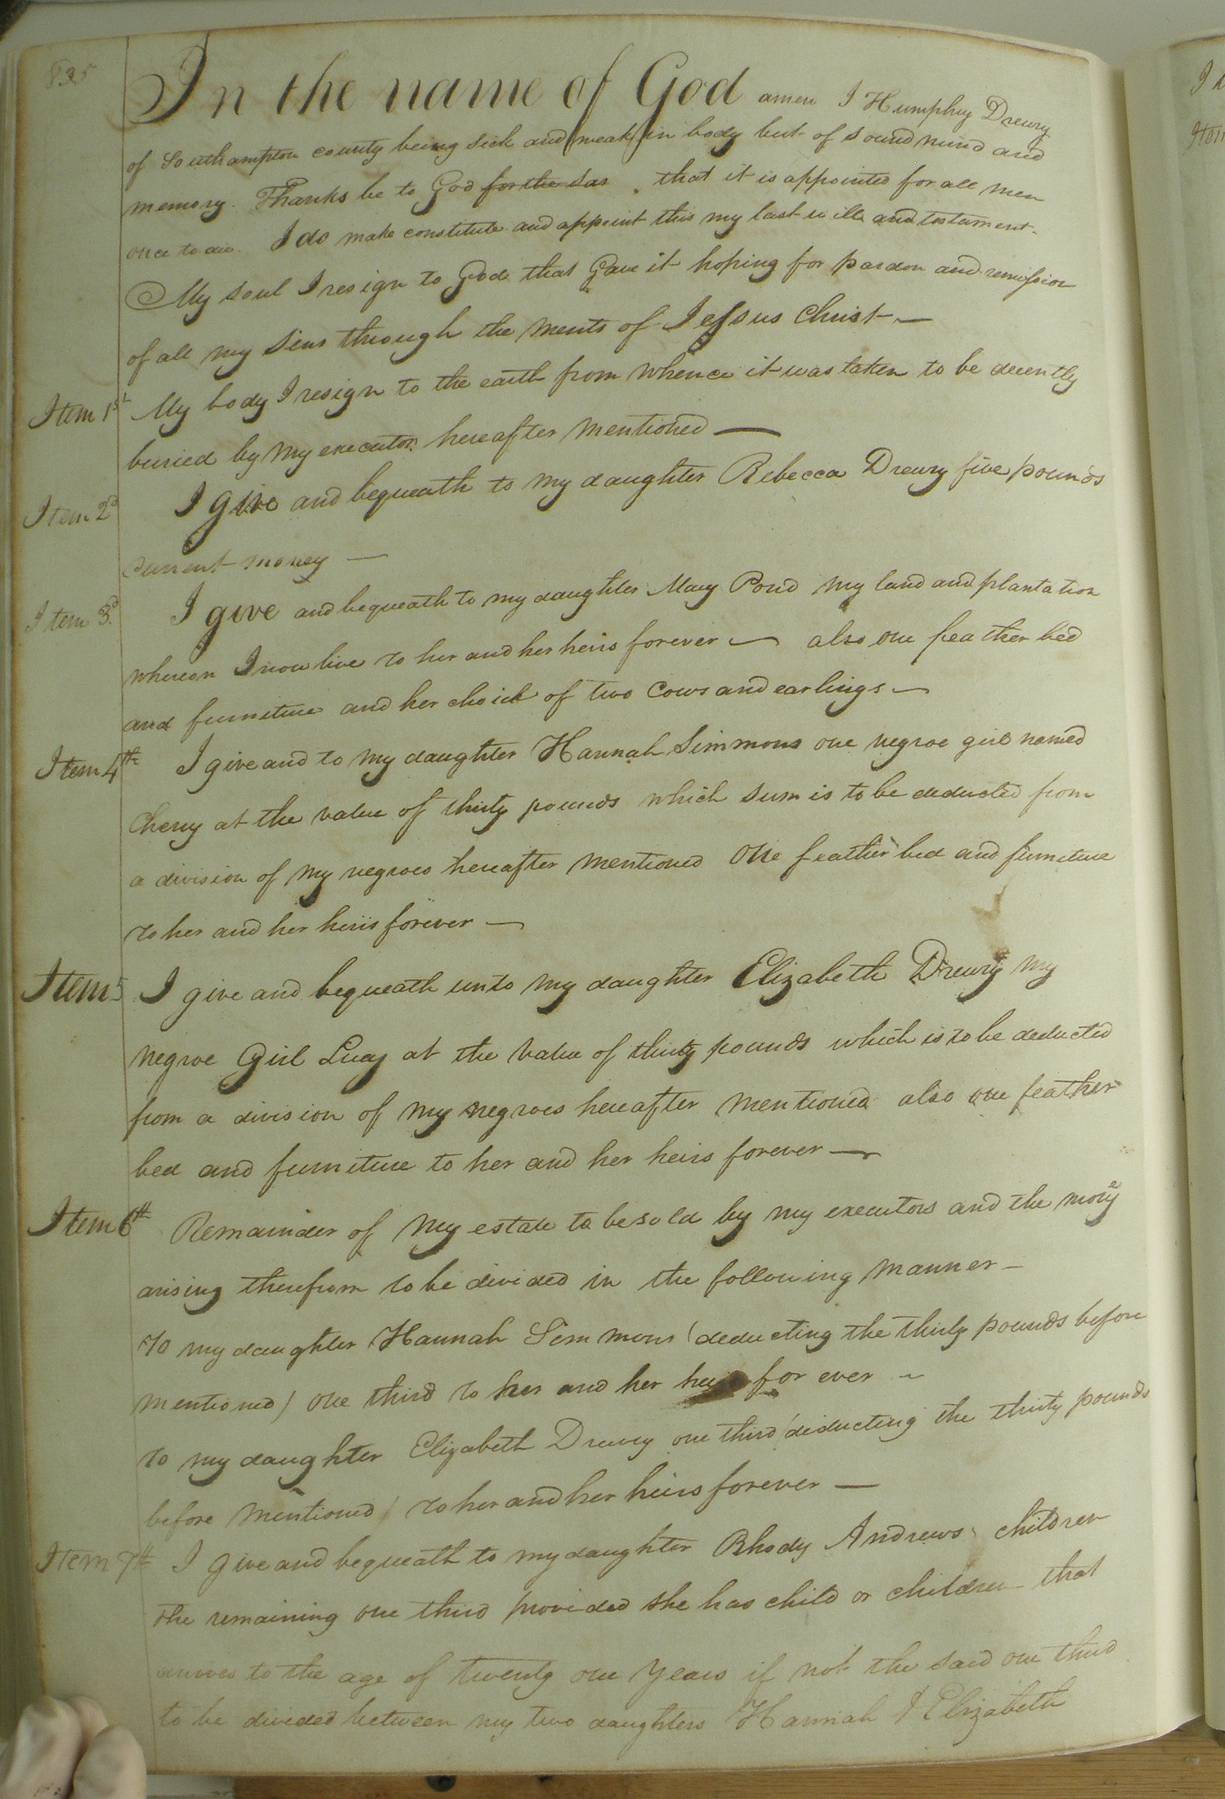 835
In the name of God amen I Humphry Drewry
of Southampton county being sick and weak in body but of sound mind and
memory. Thanks be to God for the sas. that it is appointed for all men
once to die. I do make constitute and appoint this my last will and testament.
My soul I resign to God that Gave it hoping for pardon and remission
of all my sins through the merits of Jessus Christ —
Item 1st My body I resign to the earth from whence it was taken to be decently
buried by my executors hereafter mentioned —
Item 2d I give and bequeath to my daughter Rebecca Drewry five pounds
current money —
Item 3d. I give and bequeath to my daughter Mary Pond my land and plantation
whereon I now live to her and her heirs forever — also one feather bed
and furniture and her choice of two cows and earlings —
Item 4th I give and to my daughter Hannah Simmons one negroe girl named
Cherry at the value of thirty pounds which sum is to be deducted from
a division of my negroes hereafter mentioned One feather bed and furniture
to her and her heirs forever —
Item 5 I give and bequeath unto my daughter Elizabeth Drewry my
negroe Girl Lucy at the value of thirty pounds which is to be deducted
from a division of my negroes hereafter mentioned also one feather
bed and furniture to her and her heirs forever —
Item 6th Remainder of my estate to be sold by my executors and the mony
arising therefrom to be divided in the following manner —
To my daughter Hannah Simmons (deducting the thirty pounds before
mentioned) one third to her and her heirs for ever ~
To my daughter Elizabeth Drewry one third (deducting the thirty pounds
before mentioned) to her and her heirs forever —
Item 7th I give and bequeath to my daughter Rhody Andrews children
the remaining one third provided she has child or children that
arives to the age of twenty one years if not the said one third
to be divided between my two daughters Hannah & Elizabeth